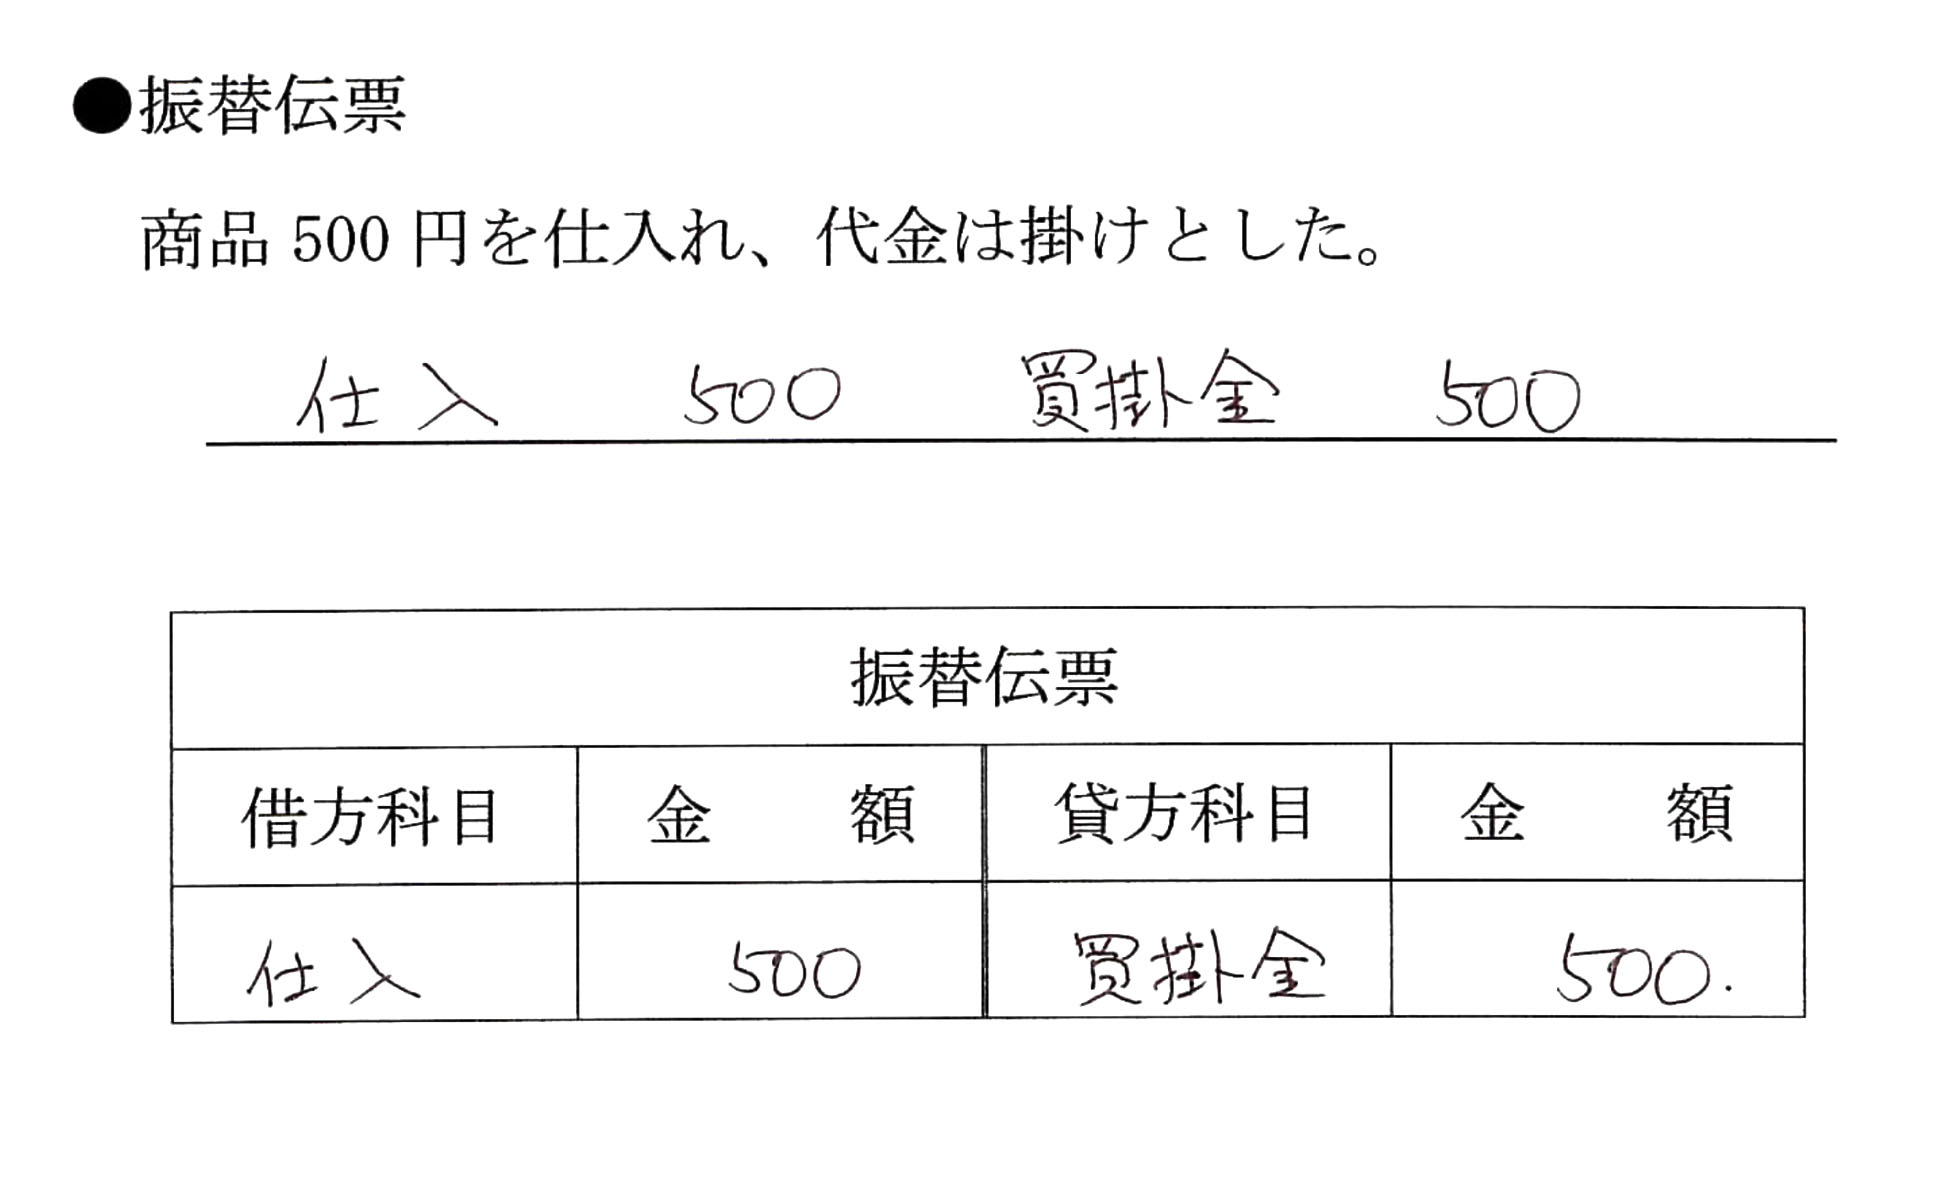 ●振替伝票
商品 500 円を仕入れ、代金は掛けとした。
仕入 500 買掛金 500
振替伝票
借方科目 金 額 貸方科目 金 額
仕入 500 買掛金 500.